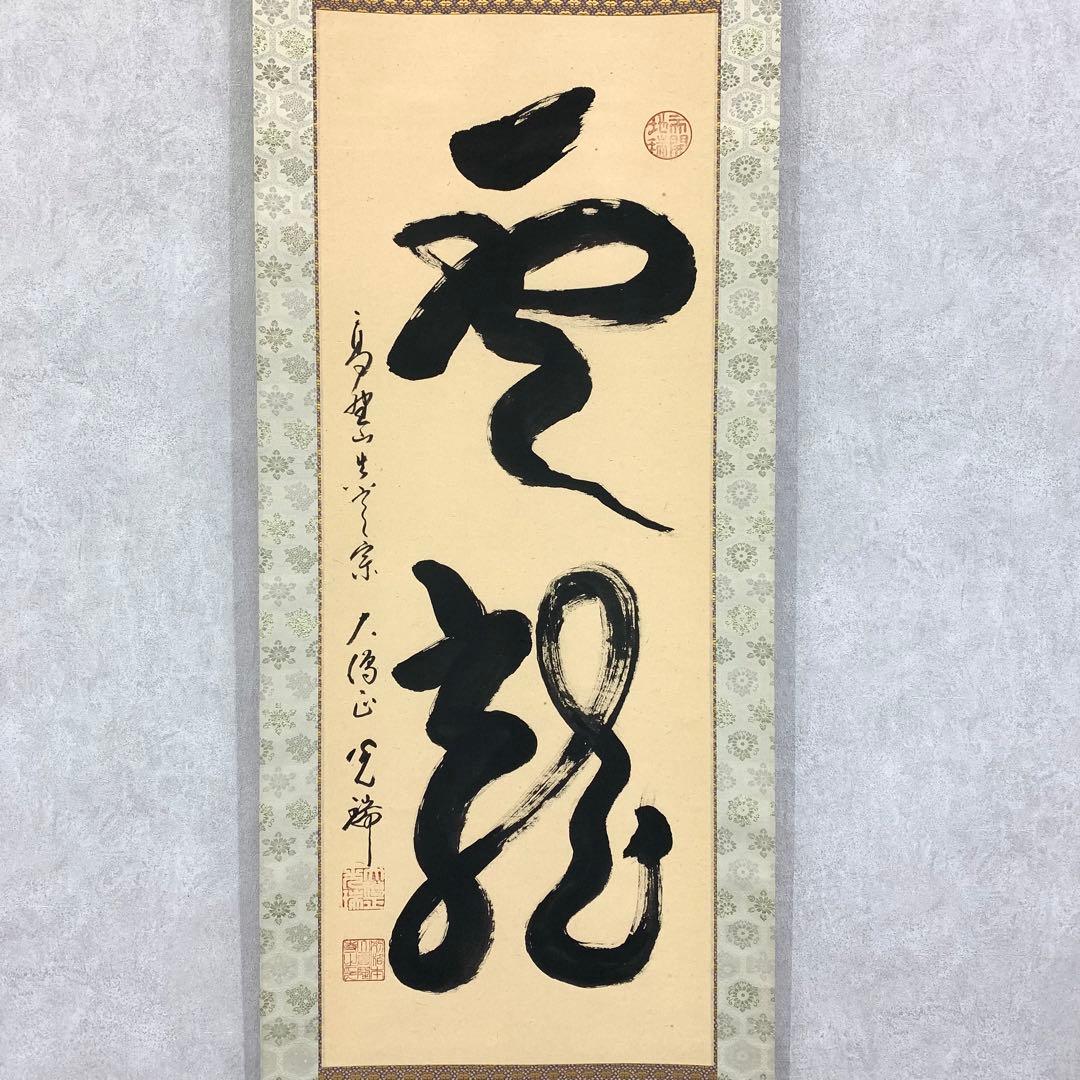 雲龍
高野山真言宗 大僧正 光瑞